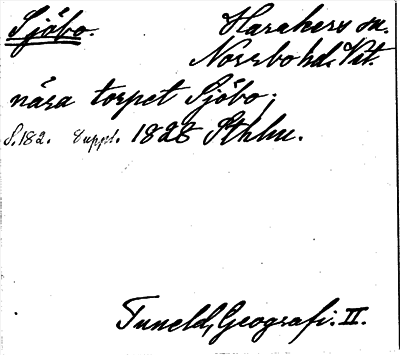 Sjöbo. Harakers sn.
Norrbo hd. Vstl.
nära torpet Sjöbo;
S. 182. Suppl. 1828 Sthlm.
Tuneld, Geografi. II.